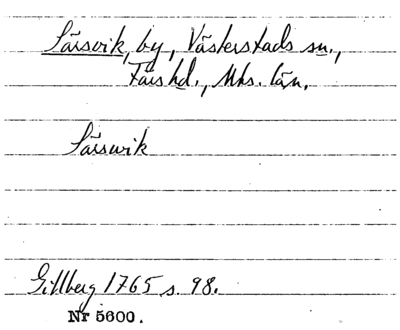 Särsvik, by, Västerstads sn.,
Färs hd., Mhs. län.
Särswik
Gillberg 1765 s. 98.
Nr 5600.